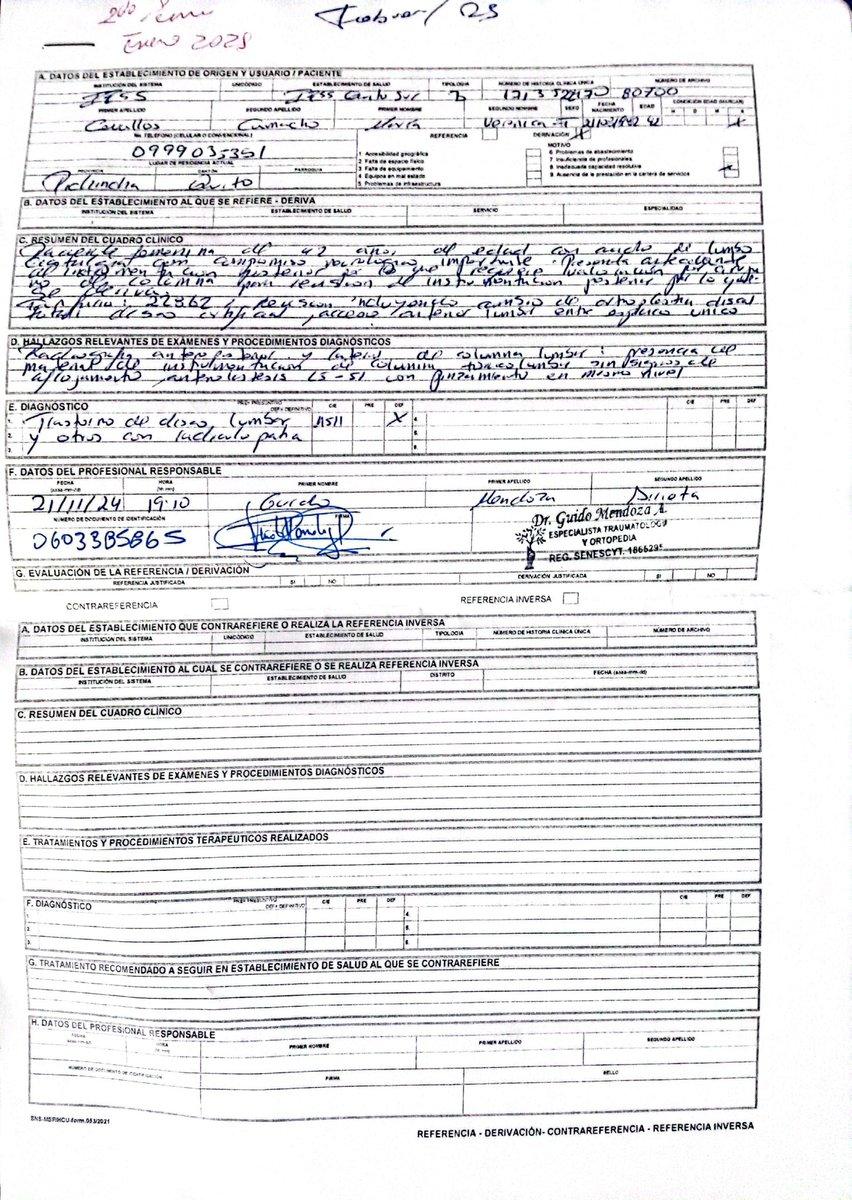 Enero 2025
/ 25
A. DATOS DEL ESTABLECIMIENTO DE ORIGEN Y USUARIO / PACIENTE
INSTITUCIÓN DEL SISTEMA UNICÓDIGO ESTABLECIMIENTO DE SALUD TIPOLOGIA NÚMERO DE HISTORIA CLINICA ÚNICA NÚMERO DE ARCHIVO
IESS IESS Sur 80700
PRIMER APELLIDO SEGUNDO APELLIDO PRIMER NOMBRE SEGUNDO NOMBRE SEXO FECHA NACIMIENTO EDAD CONDICIÓN EDAD (MARCAR)
Camacho María Veronica F 42 X
No. TELÉFONO (CELULAR O CONVENCIONAL) REFERENCIA DERIVACIÓN X
0999035351 MOTIVO
LUGAR DE RESIDENCIA ACTUAL
1 Accesibilidad geográfica 6 Problemas de abastecimiento
2 Falta de espacio físico 7 Insuficiencia de profesionales
3 Falta de equipamiento 8 Inadecuada capacidad resolutiva X
4 Equipos en mal estado 9 Ausencia de la prestación en la cartera de servicios
5 Problemas de infraestructura
PROVINCIA CANTÓN PARROQUIA
Pichincha Quito
B. DATOS DEL ESTABLECIMIENTO AL QUE SE REFIERE - DERIVA
INSTITUCIÓN DEL SISTEMA ESTABLECIMIENTO DE SALUD SERVICIO ESPECIALIDAD
C. RESUMEN DEL CUADRO CLÍNICO
Paciente femenina de 42 años de edad con de lumbo
con compromiso neurologico importante. Presenta antecedente
de instrumentacion posterior por lo que requiere valoracion por
de columna para revision de instrumentacion posterior por lo que
se deriva.
22862 / Revision incluyendo cambio de artroplastia discal
total disco artificial acceso anterior lumbar entre espacio unico
D. HALLAZGOS RELEVANTES DE EXÁMENES Y PROCEDIMIENTOS DIAGNÓSTICOS
Radiografia anteroposterior y lateral de columna lumbar: presencia de
material de instrumentacion de columna toracolumbar sin signos de
aflojamiento, anterolistesis L5-S1 con pinzamiento en mismo nivel
E. DIAGNÓSTICO PRE= PRESUNTIVO DEF= DEFINITIVO CIE PRE DEF CIE PRE DEF
1. Trastorno de disco lumbar M511 X 4.
2. y otros con radiculopatia 5.
3. 6.
F. DATOS DEL PROFESIONAL RESPONSABLE
FECHA (aaaa-mm-dd) HORA (hh:mm) PRIMER NOMBRE PRIMER APELLIDO SEGUNDO APELLIDO
21/11/24 19:10 Guido Mendoza
NÚMERO DE DOCUMENTO DE IDENTIFICACIÓN FIRMA
0603385865
Dr. Guido Mendoza A.
ESPECIALISTA TRAUMATOLOGO
Y ORTOPEDIA
REG. SENESCYT. 1866295
G. EVALUACIÓN DE LA REFERENCIA / DERIVACIÓN
REFERENCIA JUSTIFICADA SI NO DERIVACIÓN JUSTIFICADA SI NO
CONTRAREFERENCIA REFERENCIA INVERSA
A. DATOS DEL ESTABLECIMIENTO QUE CONTRAREFIERE O REALIZA LA REFERENCIA INVERSA
INSTITUCIÓN DEL SISTEMA UNICÓDIGO ESTABLECIMIENTO DE SALUD TIPOLOGIA NÚMERO DE HISTORIA CLINICA ÚNICA NÚMERO DE ARCHIVO
B. DATOS DEL ESTABLECIMIENTO AL CUAL SE CONTRAREFIERE O SE REALIZA REFERENCIA INVERSA
INSTITUCIÓN DEL SISTEMA ESTABLECIMIENTO DE SALUD DISTRITO FECHA (aaaa-mm-dd)
C. RESUMEN DEL CUADRO CLÍNICO
D. HALLAZGOS RELEVANTES DE EXÁMENES Y PROCEDIMIENTOS DIAGNÓSTICOS
E. TRATAMIENTOS Y PROCEDIMIENTOS TERAPEUTICOS REALIZADOS
F. DIAGNÓSTICO PRE= PRESUNTIVO DEF= DEFINITIVO CIE PRE DEF CIE PRE DEF
1. 4.
2. 5.
3. 6.
G. TRATAMIENTO RECOMENDADO A SEGUIR EN ESTABLECIMIENTO DE SALUD AL QUE SE CONTRAREFIERE
H. DATOS DEL PROFESIONAL RESPONSABLE
FECHA (aaaa-mm-dd) HORA (hh:mm) PRIMER NOMBRE PRIMER APELLIDO SEGUNDO APELLIDO
NÚMERO DE DOCUMENTO DE IDENTIFICACIÓN FIRMA SELLO
SNS-MSP/HCU-form.053/2021
REFERENCIA - DERIVACIÓN- CONTRAREFERENCIA - REFERENCIA INVERSA